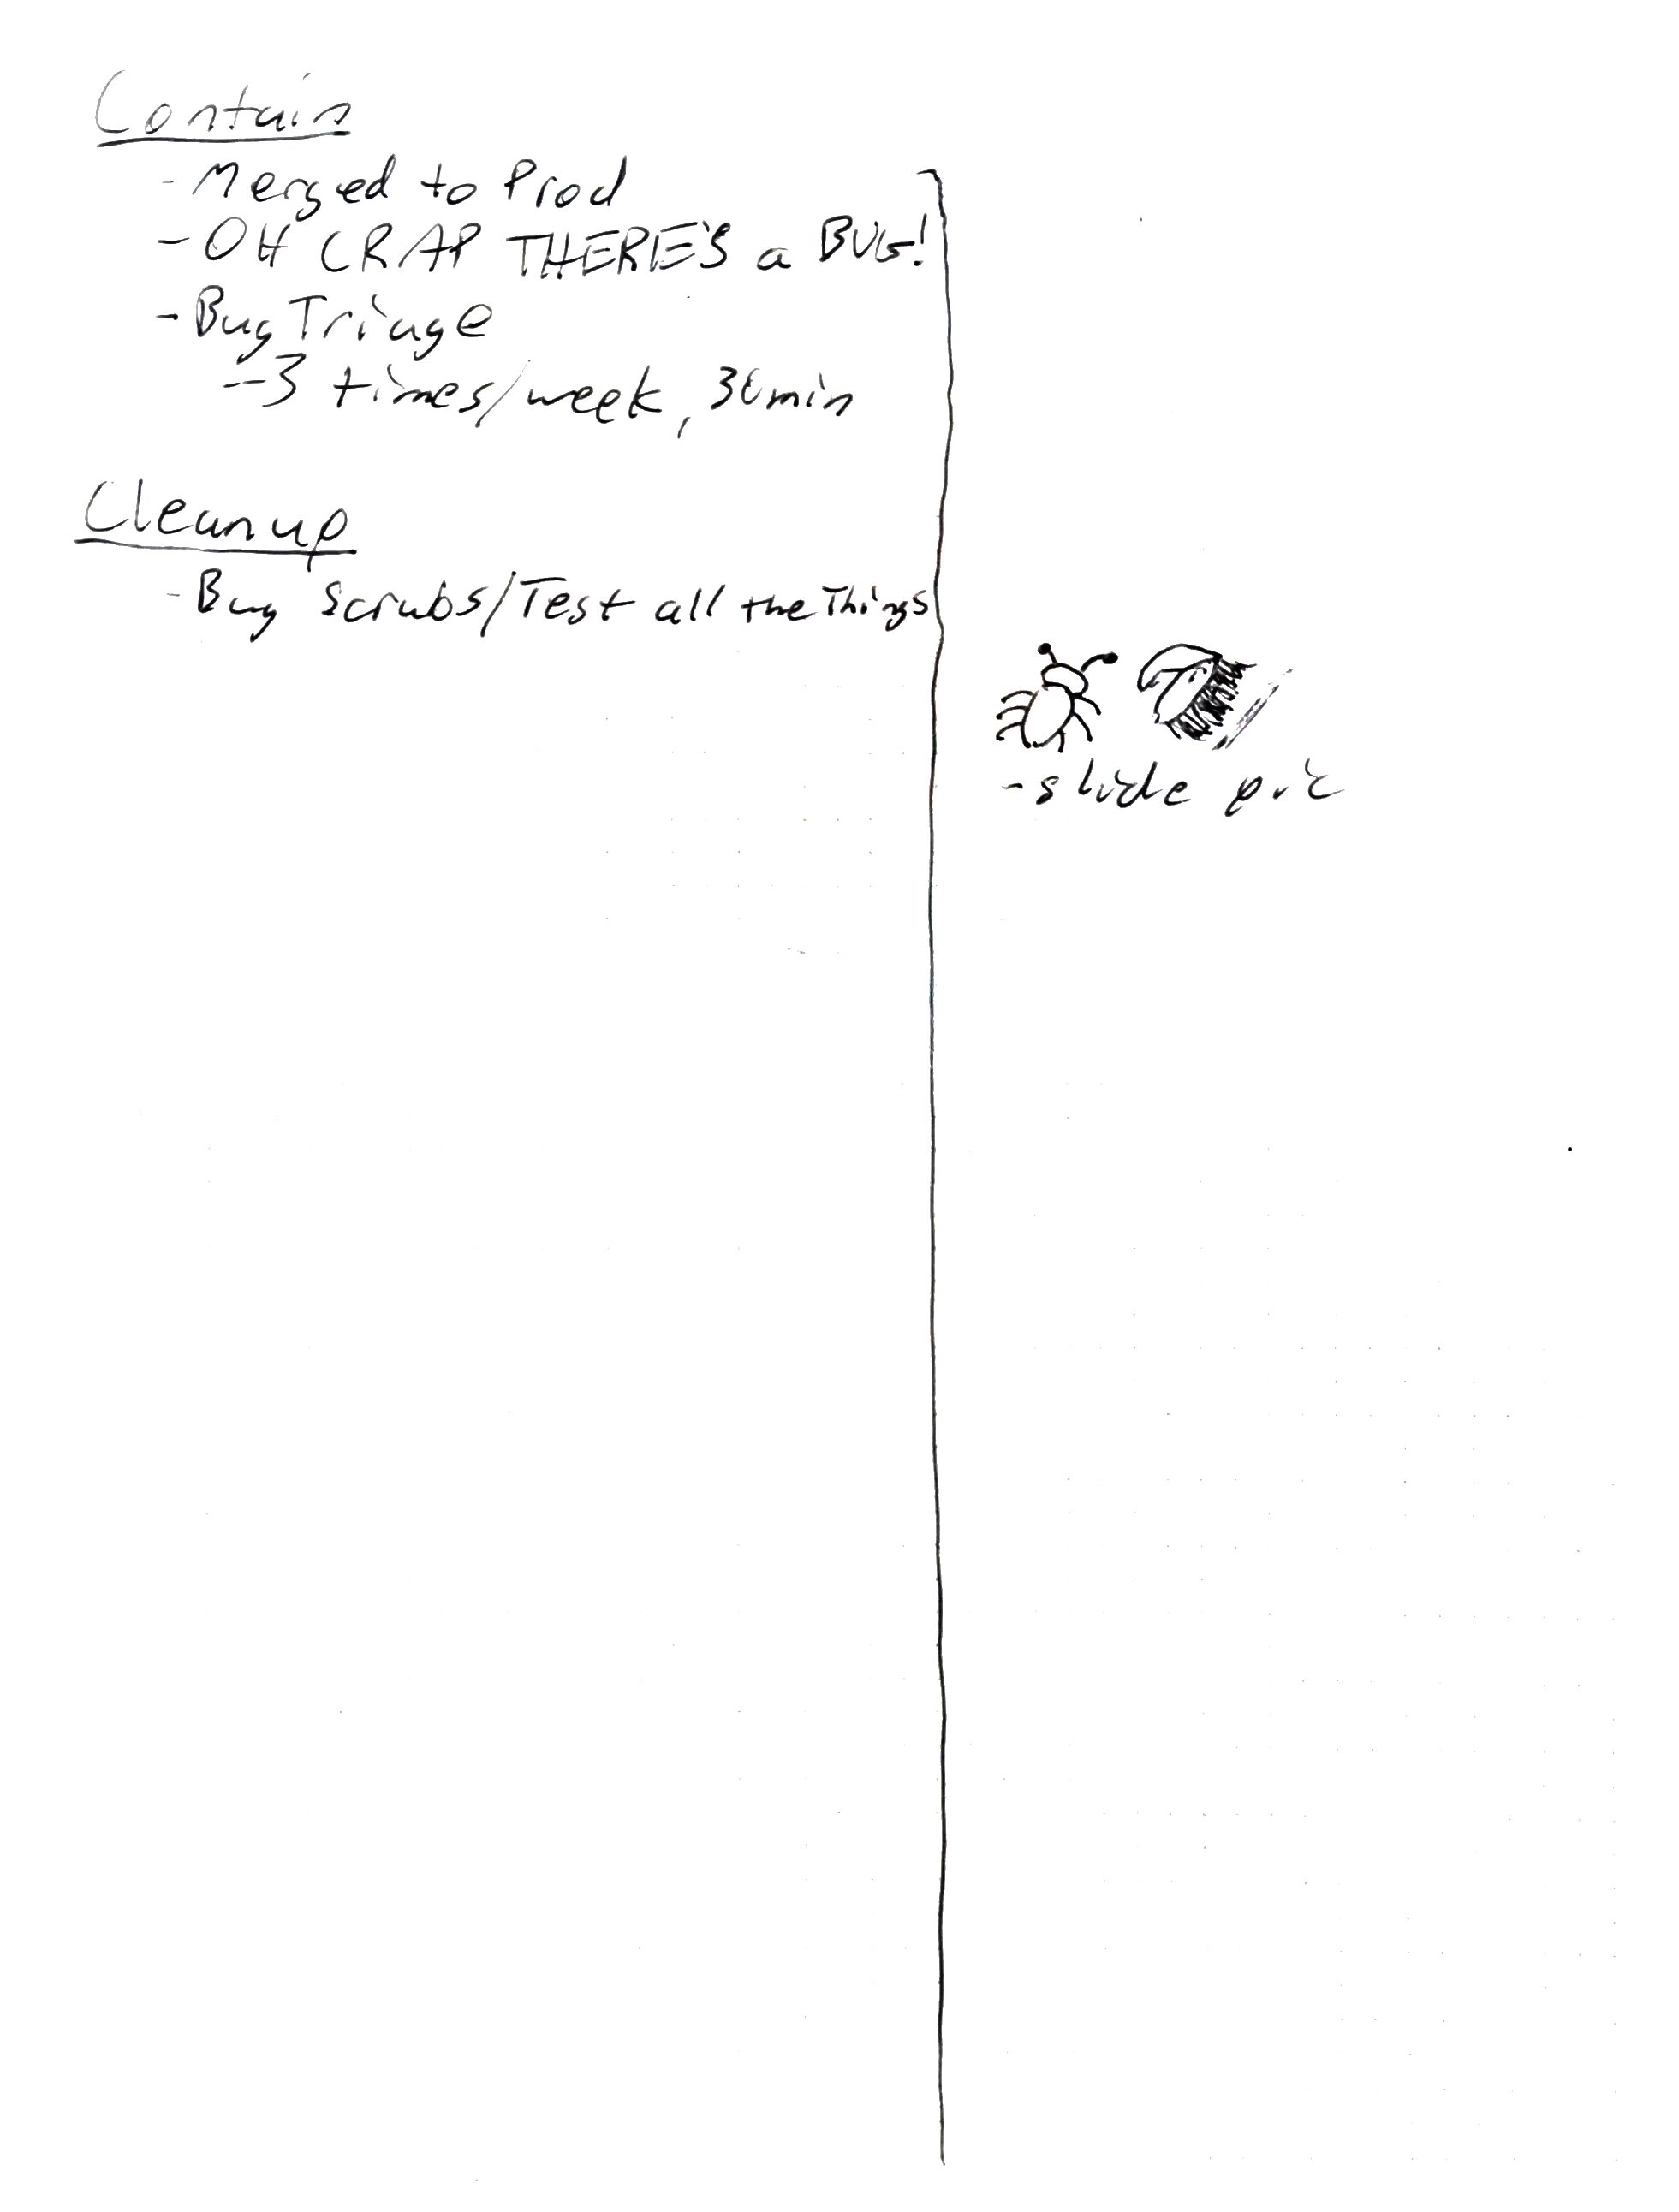 Contain
- Merged to Prod
- OH CRAP THERE'S a BUG!
- Bug Triage
-- 3 times/week, 30min
Cleanup
- Bug Scrubs/Test all the Things
- slide pic